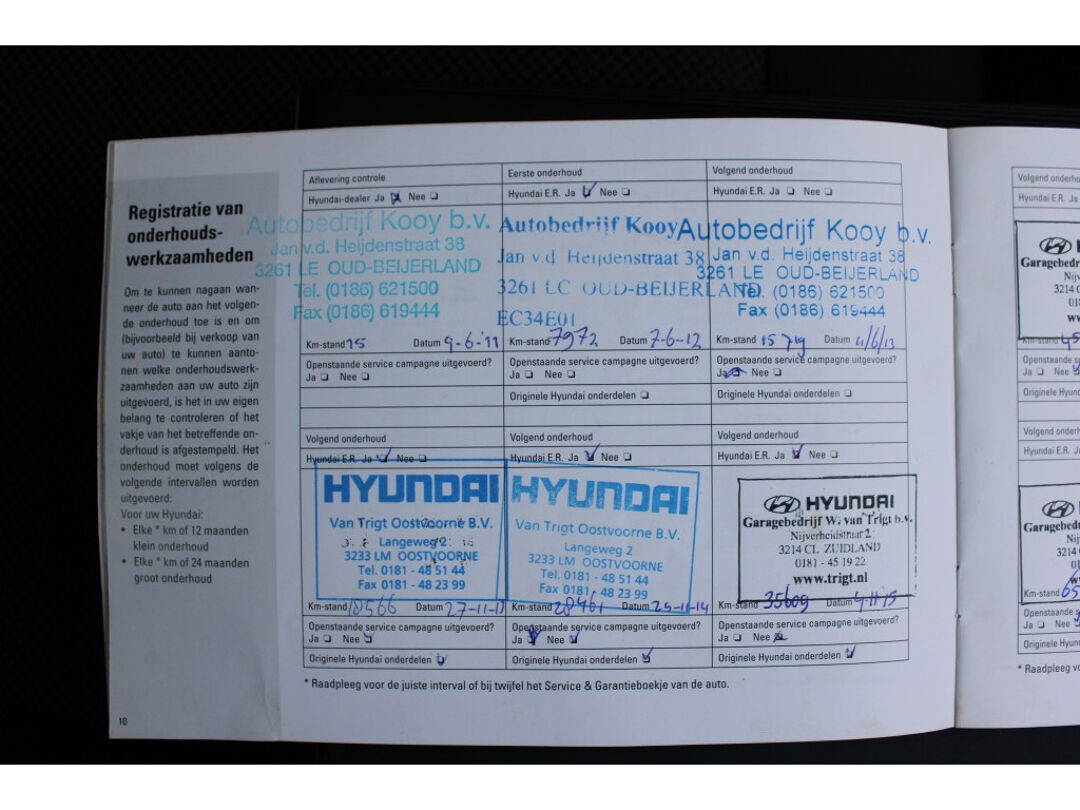 Registratie van
onderhouds-
werkzaamheden
Om te kunnen nagaan wan-
neer de auto aan het volgen-
de onderhoud toe is en om
(bijvoorbeeld bij verkoop van
uw auto) te kunnen aanto-
nen welke onderhoudswerk-
zaamheden aan uw auto zijn
uitgevoerd, is het in uw eigen
belang te controleren of het
vakje van het betreffende on-
derhoud is afgestempeld. Het
onderhoud moet volgens de
volgende intervallen worden
uitgevoerd:
Voor uw Hyundai:
• Elke * km of 12 maanden
klein onderhoud
• Elke * km of 24 maanden
groot onderhoud
10
Aflevering controle
Hyundai-dealer Ja Nee
Autobedrijf Kooy b.v.
Jan v.d. Heijdenstraat 38
3261 LE OUD-BEIJERLAND
Tel. (0186) 621500
Fax (0186) 619444
Km-stand 15 Datum 9-6-'11
Openstaande service campagne uitgevoerd?
Ja Nee
Eerste onderhoud
Hyundai E.R. Ja Nee
Autobedrijf Kooy
Jan v.d Heijdenstraat 38
3261 LC OUD-BEIJERLAND
EC34E01
Km-stand 7972 Datum 7-6-12
Openstaande service campagne uitgevoerd?
Ja Nee
Originele Hyundai onderdelen
Volgend onderhoud
Hyundai E.R. Ja Nee
Autobedrijf Kooy b.v.
Jan v.d. Heijdenstraat 38
3261 LE OUD-BEIJERLAND
Tel. (0186) 621500
Fax (0186) 619444
Km-stand Datum
Openstaande service campagne uitgevoerd?
Ja Nee
Originele Hyundai onderdelen
Volgend onderhoud
Hyundai E.R. Ja Nee
HYUNDAI
Van Trigt Oostvoorne B.V.
Langeweg 2
3233 LM OOSTVOORNE
Tel. 0181 - 48 51 44
Fax 0181 - 48 23 99
Km-stand 18566 Datum
Openstaande service campagne uitgevoerd?
Ja Nee
Originele Hyundai onderdelen
Volgend onderhoud
Hyundai E.R. Ja Nee
HYUNDAI
Van Trigt Oostvoorne B.V.
Langeweg 2
3233 LM OOSTVOORNE
Tel. 0181 - 48 51 44
Fax 0181 - 48 23 99
Km-stand 28461 Datum 25-11-14
Openstaande service campagne uitgevoerd?
Ja Nee
Originele Hyundai onderdelen
Volgend onderhoud
Hyundai E.R. Ja Nee
HYUNDAI
Garagebedrijf W. van Trigt b.v.
Nijverheidstraat 2
3214 CL ZUIDLAND
0181 - 45 19 22
www.trigt.nl
Km-stand 35609 Datum 4-11-15
Openstaande service campagne uitgevoerd?
Ja Nee
Originele Hyundai onderdelen
* Raadpleeg voor de juiste interval of bij twijfel het Service & Garantieboekje van de auto.
Volgend onderho
Hyundai E.R. Ja
Garagebedr
Nij
3214 C
Km-stand
Openstaande s
Ja Nee
Originele Hyund
Volgend onderh
Hyundai E.R. Ja
Garagebedr
Nij
3214
Km-stand
Openstaande
Ja Nee
Originele Hyun
* Raadpleeg vo